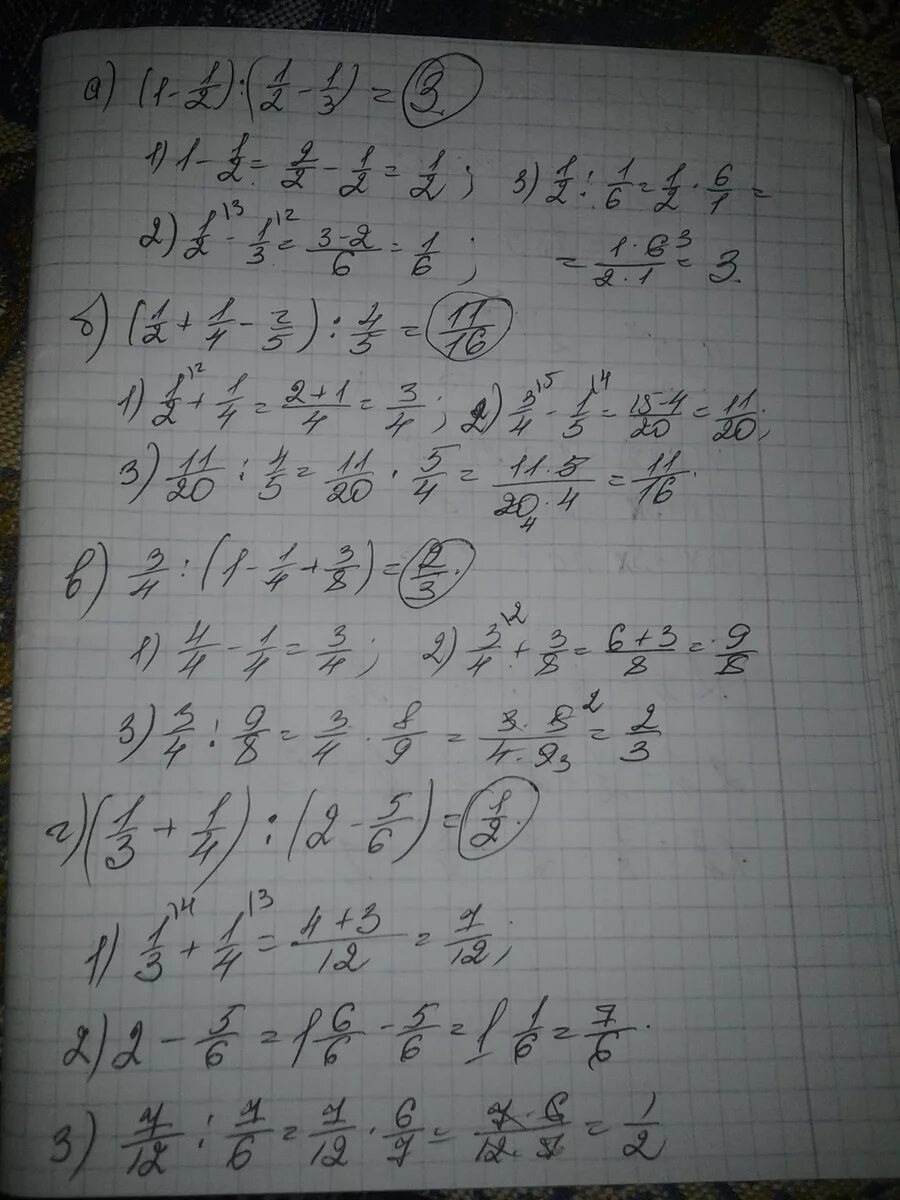 а) (1 - 1/2) : (1/2 - 1/3) = 3.
1) 1 - 1/2 = 2/2 - 1/2 = 1/2 ; 3) 1/2 : 1/6 = 1/2 · 6/1 =
2) 1/2 \3 - 1/3 \2 = 3-2/6 = 1/6 ; = 1·6 3/2·1 = 3.
б) (1/2 + 1/4 - 2/5) : 4/5 = 11/16
1) 1/2 \2 + 1/4 = 2+1/4 = 3/4 ; 2) 3/4 \5 - 1/5 \4 = 15-4/20 = 11/20 ;
3) 11/20 : 4/5 = 11/20 · 5/4 = 11·5/20 4·4 = 11/16.
в) 3/4 : (1 - 1/4 + 3/8) = 2/3.
1) 4/4 - 1/4 = 3/4 ; 2) 3/4 \2 + 3/8 = 6+3/8 = 9/8
3) 3/4 : 9/8 = 3/4 · 8/9 = 3·8 2/4·9 3 = 2/3
г) (1/3 + 1/4) : (2 - 5/6) = 1/2.
1) 1/3 \4 + 1/4 \3 = 4+3/12 = 7/12 ;
2) 2 - 5/6 = 1 6/6 - 5/6 = 1 1/6 = 7/6.
3) 7/12 : 7/6 = 7/12 · 6/7 = 7·6/12·7 = 1/2